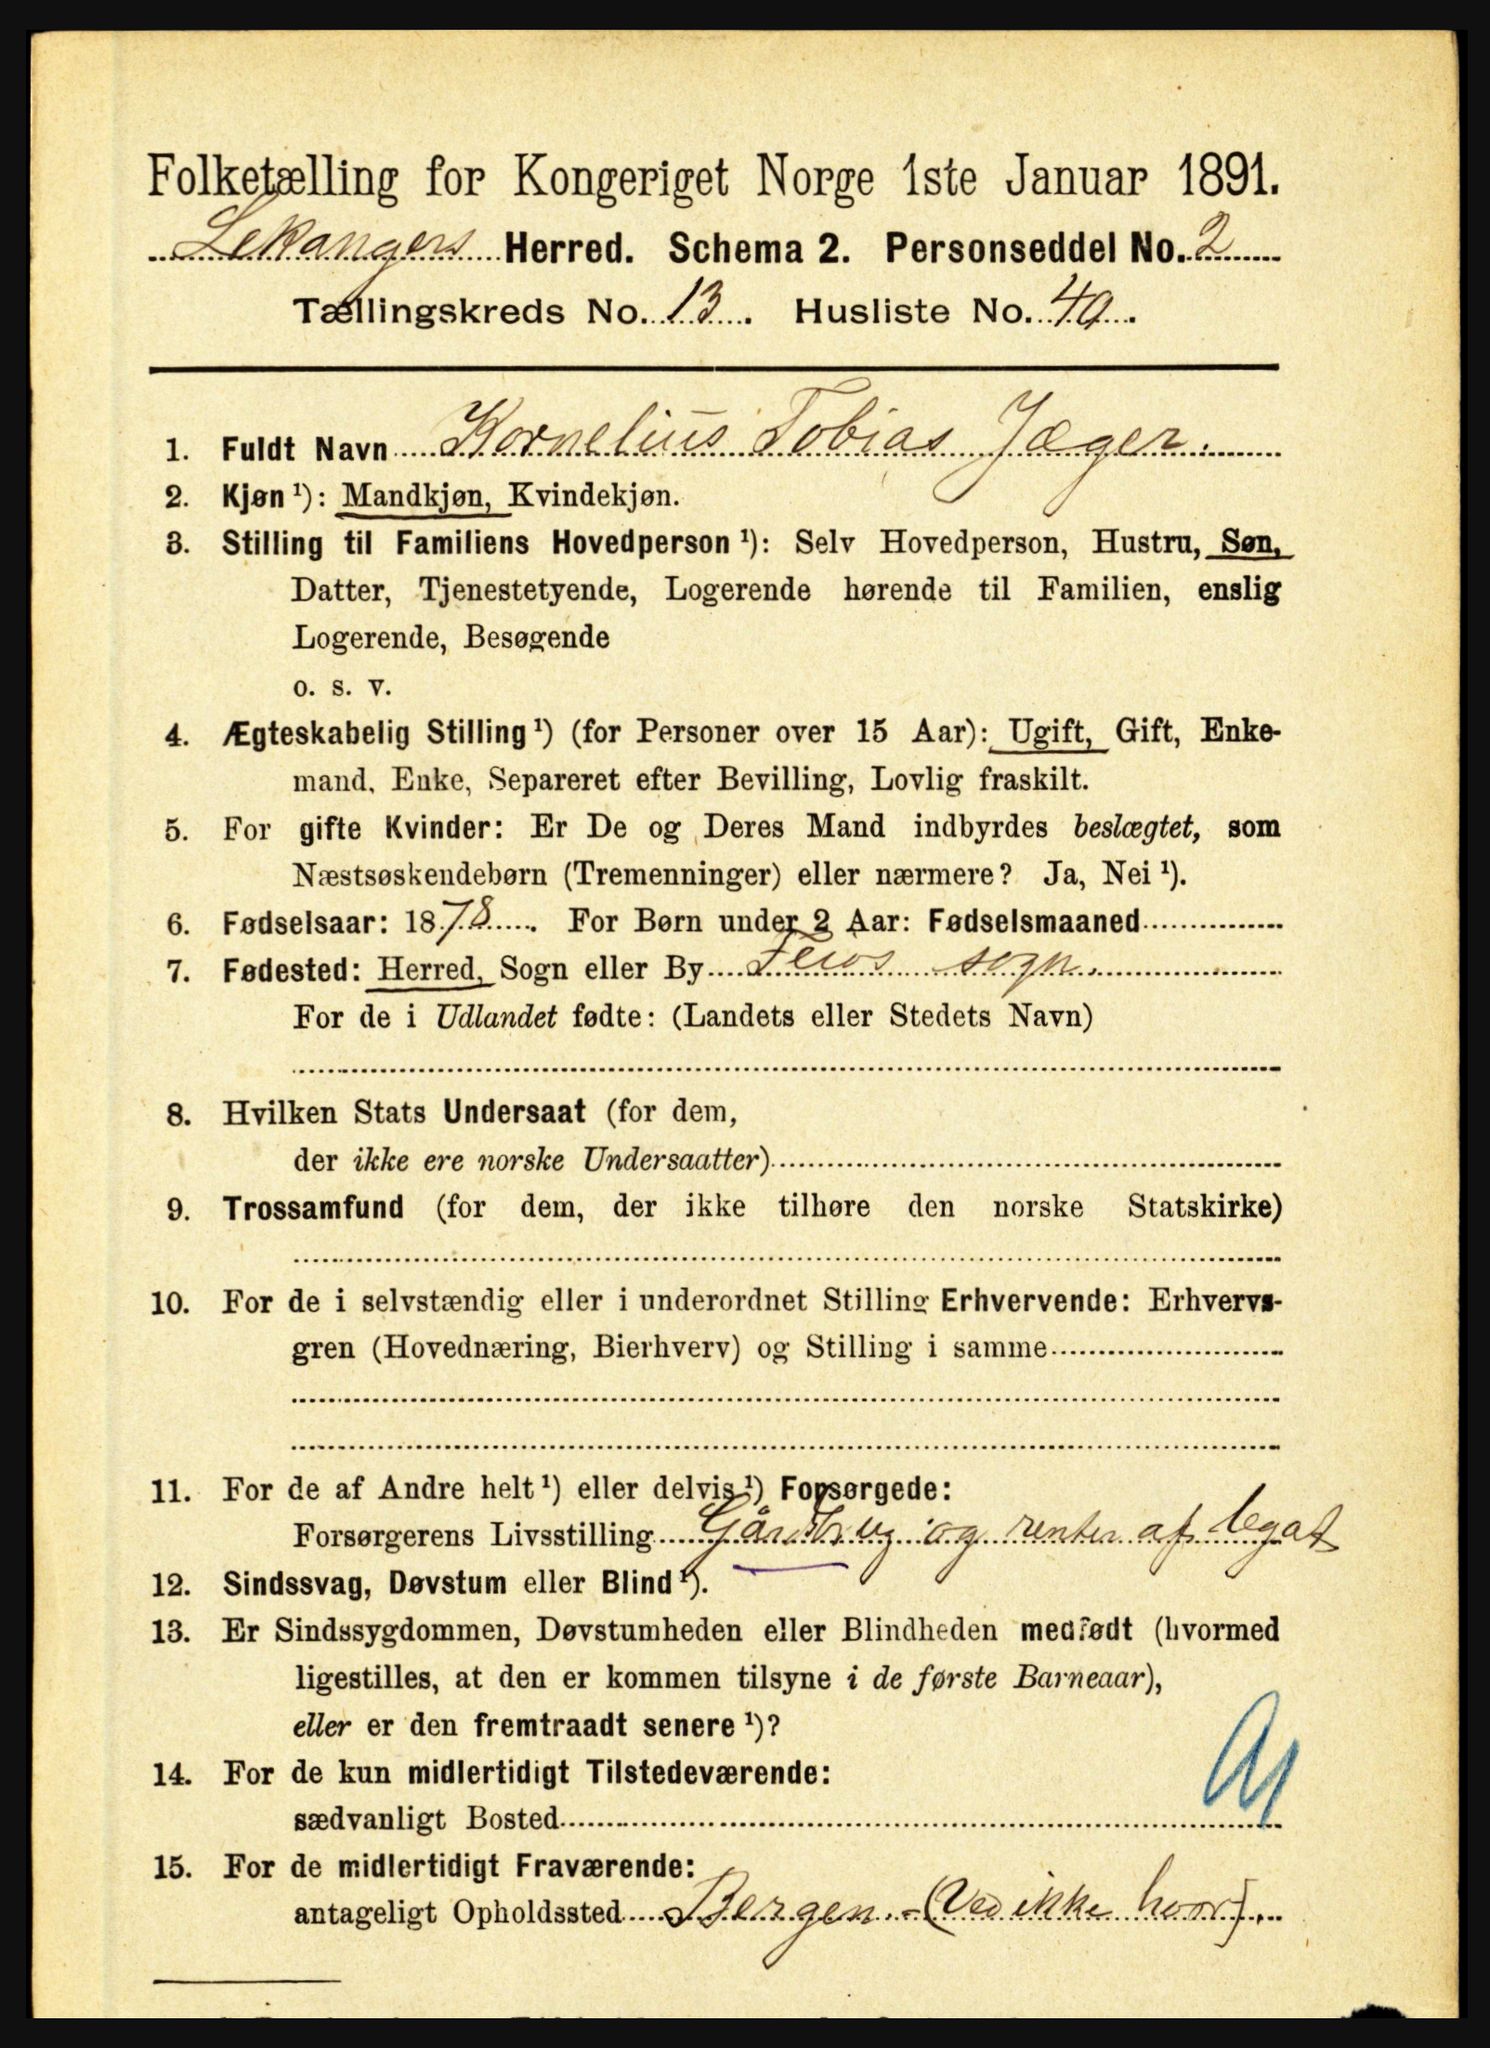 Folketælling for Kongeriget Norge 1ste Januar 1891.
Lekangers Herred. Schema 2. Personseddel No. 2
Tællingskreds No. 13. Husliste No. 49.
1. Fuldt Navn Kornelius Tobias Jæger.
2. Kjøn ¹): Mandkjøn, Kvindekjøn.
3. Stilling til Familiens Hovedperson ¹): Selv Hovedperson, Hustru, Søn,
Datter, Tjenestetyende, Logerende hørende til Familien, enslig
Logerende, Besøgende
o. s. v.
4. Ægteskabelig Stilling ¹) (for Personer over 15 Aar): Ugift, Gift, Enke-
mand, Enke, Separeret efter Bevilling, Lovlig fraskilt.
5. For gifte Kvinder: Er De og Deres Mand indbyrdes beslægtet, som
Næstsøskendebørn (Tremenninger) eller nærmere? Ja, Nei ¹).
6. Fødselsaar: 1878. For Børn under 2 Aar: Fødselsmaaned
7. Fødested: Herred, Sogn eller By Feios sogn.
For de i Udlandet fødte: (Landets eller Stedets Navn)
8. Hvilken Stats Undersaat (for dem,
der ikke ere norske Undersaatter)
9. Trossamfund (for dem, der ikke tilhøre den norske Statskirke)
10. For de i selvstændig eller i underordnet Stilling Erhvervende: Erhvervs-
gren (Hovednæring, Bierhverv) og Stilling i samme
11. For de af Andre helt ¹) eller delvis ¹) Forsørgede:
Forsørgerens Livsstilling Gårdbrug og renter af legat
12. Sindssvag, Døvstum eller Blind ¹).
13. Er Sindssygdommen, Døvstumheden eller Blindheden medfødt (hvormed
ligestilles, at den er kommen tilsyne i de første Barneaar),
eller er den fremtraadt senere ¹)?
14. For de kun midlertidigt Tilstedeværende:
sædvanligt Bosted
15. For de midlertidigt Fraværende:
antageligt Opholdssted Bergen. - (Ved ikke hvor).